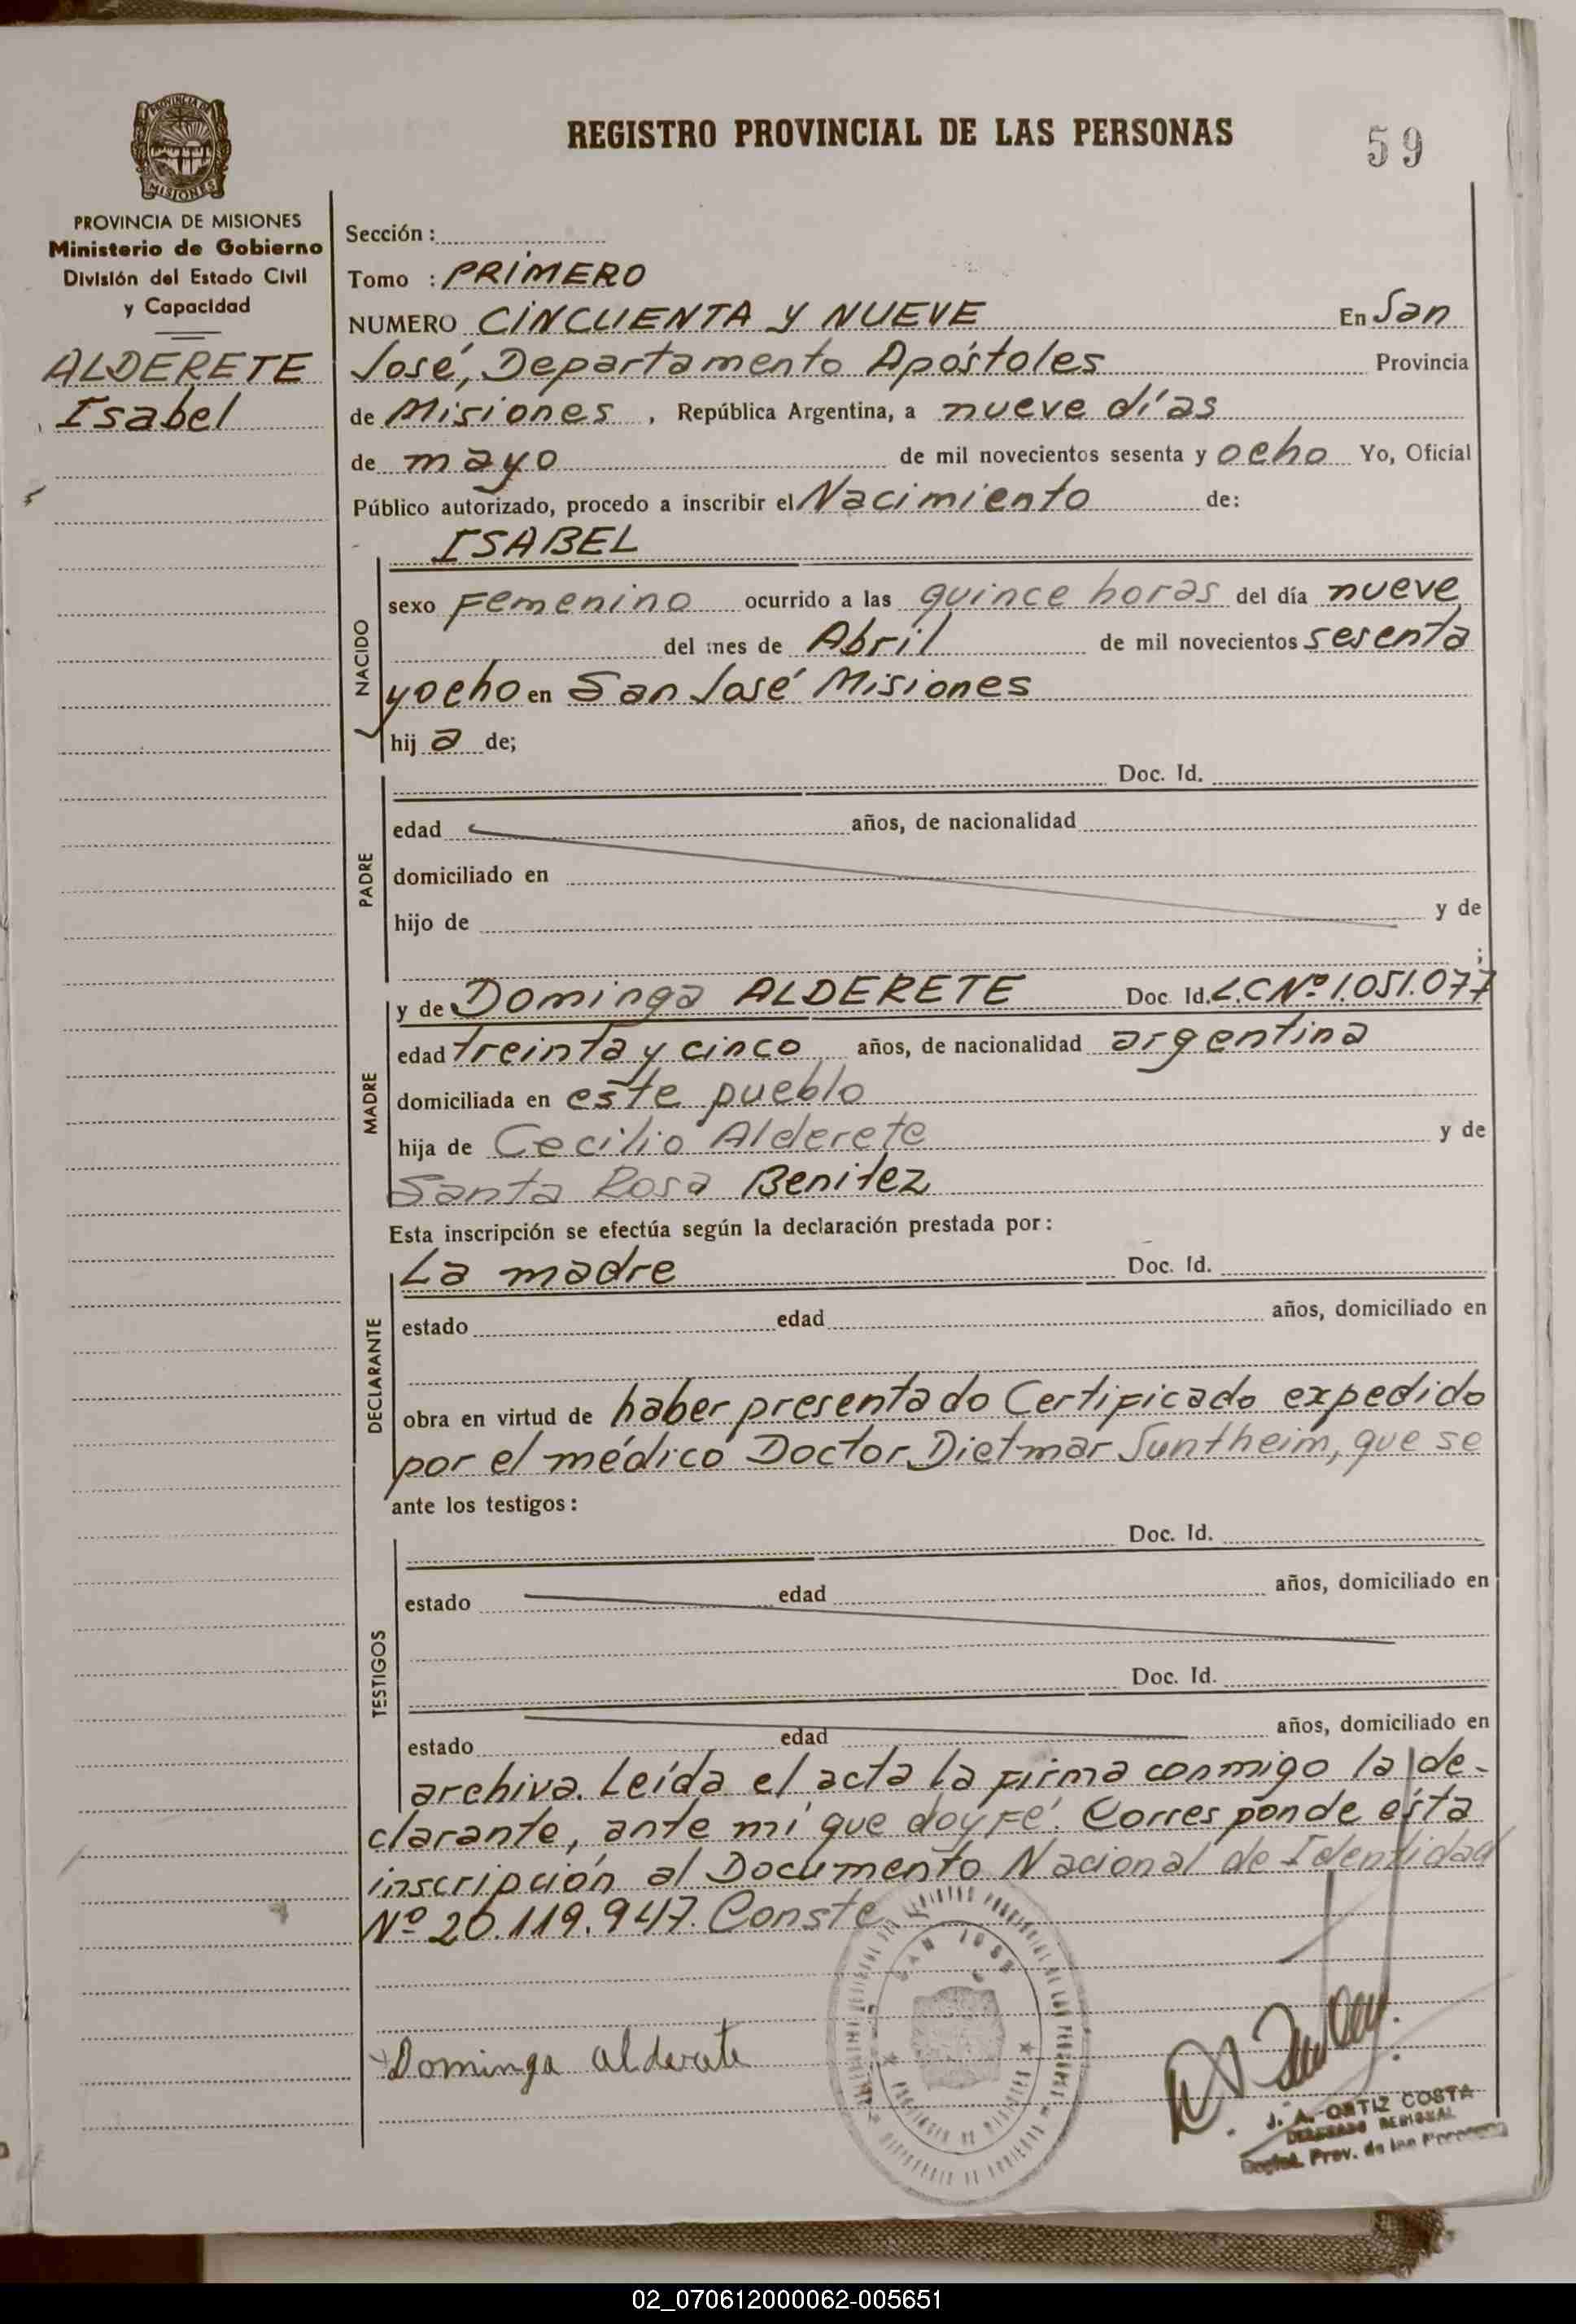 REGISTRO PROVINCIAL DE LAS PERSONAS
59
PROVINCIA DE MISIONES
PROVINCIA DE MISIONES
Ministerio de Gobierno
División del Estado Civil
y Capacidad
ALDERETE
Isabel
Sección :
Tomo : PRIMERO
NUMERO CINCUENTA Y NUEVE En San
José, Departamento Apóstoles Provincia
de Misiones , República Argentina, a nueve días
de mayo de mil novecientos sesenta y ocho Yo, Oficial
Público autorizado, procedo a inscribir el Nacimiento de:
ISABEL
NACIDO
sexo Femenino ocurrido a las quince horas del día nueve
del mes de Abril de mil novecientos sesenta
y ocho en San José Misiones
hij a de;
PADRE
Doc. Id.
edad años, de nacionalidad
domiciliado en
hijo de y de
;
MADRE
y de Dominga ALDERETE Doc. Id. L.C Nº 1.051.077
edad treinta y cinco años, de nacionalidad argentina
domiciliada en este pueblo
hija de Cecilio Alderete y de
Santa Rosa Benitez
Esta inscripción se efectúa según la declaración prestada por :
DECLARANTE
La madre Doc. Id.
estado edad años, domiciliado en
obra en virtud de haber presentado Certificado expedido
por el médico Doctor Dietmar Suntheim, que se
ante los testigos :
TESTIGOS
Doc. Id.
estado edad años, domiciliado en
Doc. Id.
estado edad años, domiciliado en
archiva. Leída el acta la firma conmigo la de-
clarante, ante mí que doy fé. Corresponde ésta
inscripción al Documento Nacional de Identidad
Nº 20.119.947. Conste
SAN JOSE
PROVINCIA DE MISIONES
Dominga alderete
J. A. ORTIZ COSTA
DELEGADO REGIONAL
Prov. de las Personas
02_070612000062-005651